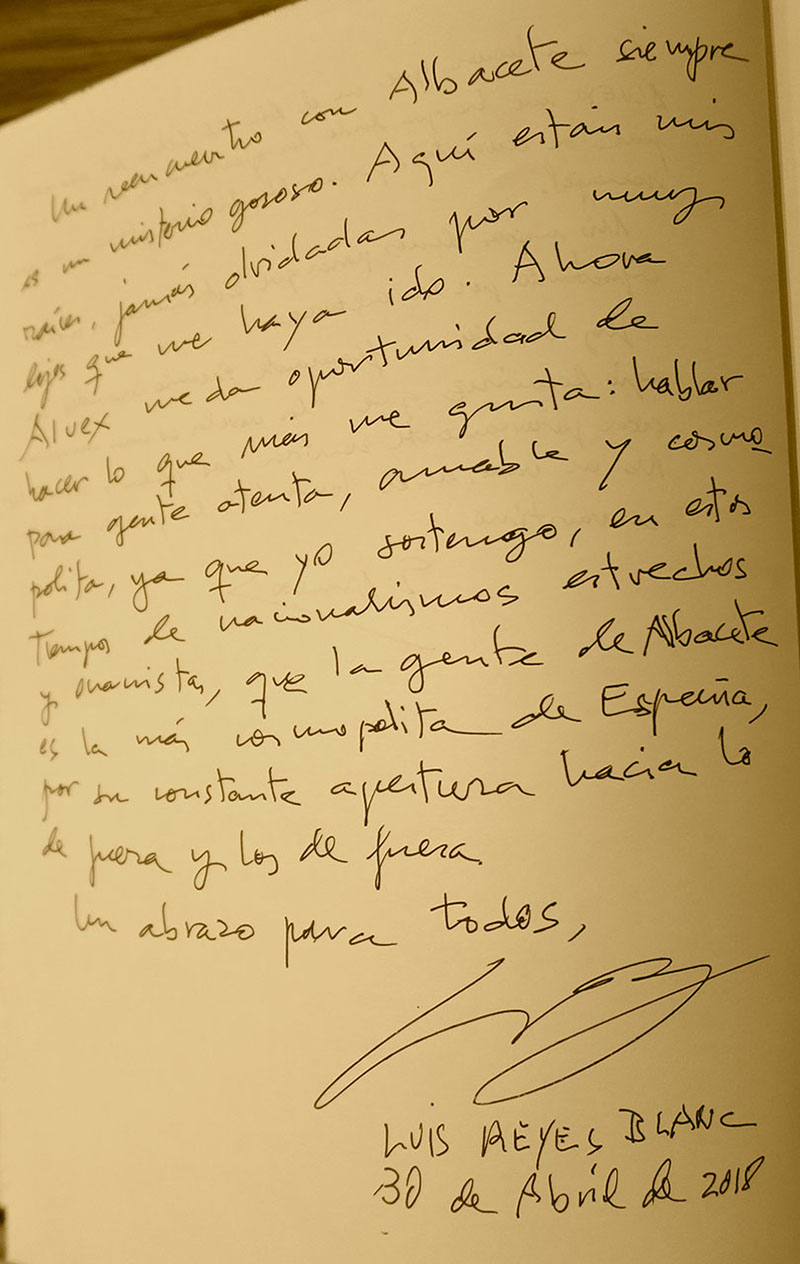 Un reencuentro con Albacete siempre
es un misterio gozoso. Aquí están mis
raíces, jamás olvidadas por muy
lejos que me haya ido. Ahora
Aluex me da oportunidad de
hacer lo que más me gusta: hablar
para gente atenta, amable y cosmo
polita, ya que yo sostengo, en estos
tiempos de nacionalismos estrechos
y onanistas, que la gente de Albacete
es la más cosmopolita de España,
por su constante apertura hacia lo
de fuera y los de fuera.
Un abrazo para todos,
LUIS REYES BLANC
30 de Abril de 2018